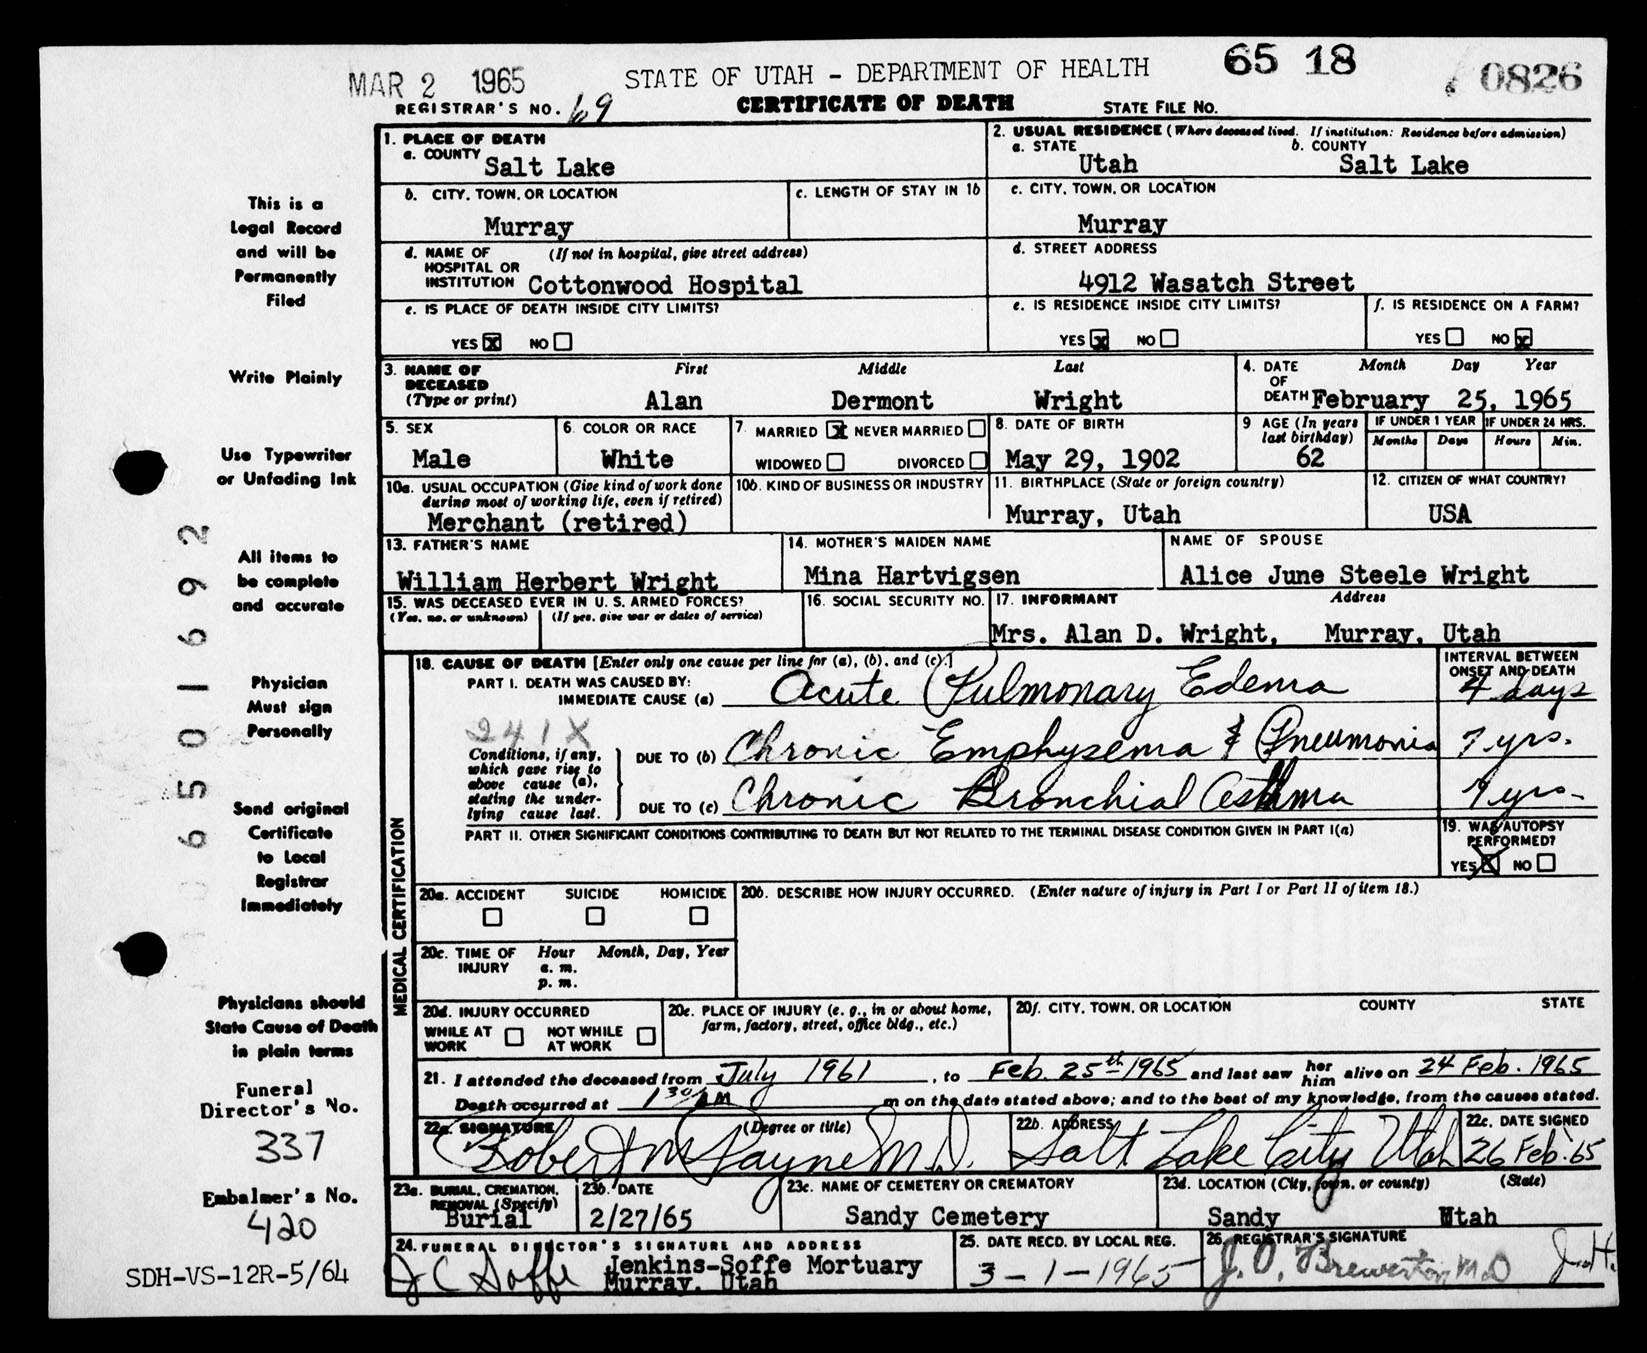 MAR 2 1965
STATE OF UTAH - DEPARTMENT OF HEALTH
65 18
0826
REGISTRAR'S NO. 69
CERTIFICATE OF DEATH
STATE FILE NO.
This is a
Legal Record
and will be
Permanently
Filed
Write Plainly
Use Typewriter
or Unfading Ink
All items to
be complete
and accurate
Physician
Must sign
Personally
Send original
Certificate
to Local
Registrar
Immediately
Physicians should
State Cause of Death
in plain terms
Funeral
Director's No.
337
Embalmer's No.
420
SDH-VS-12R-5/64
0 6 5 0 1 6 9 2
1. PLACE OF DEATH
a. COUNTY
Salt Lake
2. USUAL RESIDENCE (Where deceased lived. If institution: Residence before admission)
a. STATE
Utah
b. COUNTY
Salt Lake
b. CITY, TOWN, OR LOCATION
Murray
c. LENGTH OF STAY IN 1b
c. CITY, TOWN, OR LOCATION
Murray
d. NAME OF HOSPITAL OR INSTITUTION
(If not in hospital, give street address)
Cottonwood Hospital
d. STREET ADDRESS
4912 Wasatch Street
e. IS PLACE OF DEATH INSIDE CITY LIMITS?
YES x NO
e. IS RESIDENCE INSIDE CITY LIMITS?
YES x NO
f. IS RESIDENCE ON A FARM?
YES NO x
3. NAME OF DECEASED
(Type or print)
First Middle Last
Alan Dermont Wright
4. DATE OF DEATH
Month Day Year
February 25, 1965
5. SEX
Male
6. COLOR OR RACE
White
7. MARRIED x NEVER MARRIED
WIDOWED DIVORCED
8. DATE OF BIRTH
May 29, 1902
9 AGE (In years last birthday)
62
IF UNDER 1 YEAR
Months Days
IF UNDER 24 HRS.
Hours Min.
10a. USUAL OCCUPATION (Give kind of work done
during most of working life, even if retired)
Merchant (retired)
10b. KIND OF BUSINESS OR INDUSTRY
11. BIRTHPLACE (State or foreign country)
Murray, Utah
12. CITIZEN OF WHAT COUNTRY?
USA
13. FATHER'S NAME
William Herbert Wright
14. MOTHER'S MAIDEN NAME
Mina Hartvigsen
NAME OF SPOUSE
Alice June Steele Wright
15. WAS DECEASED EVER IN U. S. ARMED FORCES?
(Yes, no, or unknown) (If yes, give war or dates of service)
16. SOCIAL SECURITY NO.
17. INFORMANT Address
Mrs. Alan D. Wright, Murray, Utah
MEDICAL CERTIFICATION
18. CAUSE OF DEATH [Enter only one cause per line for (a), (b), and (c).]
PART I. DEATH WAS CAUSED BY:
IMMEDIATE CAUSE (a) Acute Pulmonary Edema
INTERVAL BETWEEN ONSET AND DEATH
4 days
241X
Conditions, if any,
which gave rise to
above cause (a),
stating the under-
lying cause last.
DUE TO (b) Chronic Emphysema & Pneumonia 7 yrs.
DUE TO (c) Chronic Bronchial Asthma 9 yrs.
PART II. OTHER SIGNIFICANT CONDITIONS CONTRIBUTING TO DEATH BUT NOT RELATED TO THE TERMINAL DISEASE CONDITION GIVEN IN PART I(a)
19. WAS AUTOPSY PERFORMED?
YES X NO
20a. ACCIDENT SUICIDE HOMICIDE
20b. DESCRIBE HOW INJURY OCCURRED. (Enter nature of injury in Part I or Part II of item 18.)
20c. TIME OF INJURY
Hour Month, Day, Year
a. m.
p. m.
20d. INJURY OCCURRED
WHILE AT WORK NOT WHILE AT WORK
20e. PLACE OF INJURY (e. g., in or about home,
farm, factory, street, office bldg., etc.)
20f. CITY, TOWN, OR LOCATION COUNTY STATE
21. I attended the deceased from July 1961, to Feb. 25th 1965 and last saw her him alive on 24 Feb. 1965
Death occurred at 1 30 AM m on the date stated above; and to the best of my knowledge, from the causes stated.
22a. SIGNATURE (Degree or title)
Robert M Payne M.D.
22b. ADDRESS
Salt Lake City Utah
22c. DATE SIGNED
26 Feb. '65
23a. BURIAL, CREMATION, REMOVAL (Specify)
Burial
23b. DATE
2/27/65
23c. NAME OF CEMETERY OR CREMATORY
Sandy Cemetery
23d. LOCATION (City, town, or county) (State)
Sandy Utah
24. FUNERAL DIRECTOR'S SIGNATURE AND ADDRESS
J C Soffe
Jenkins-Soffe Mortuary
Murray, Utah
25. DATE RECD. BY LOCAL REG.
3-1-1965
26. REGISTRAR'S SIGNATURE
J. O. Brewerton MD
J.H.